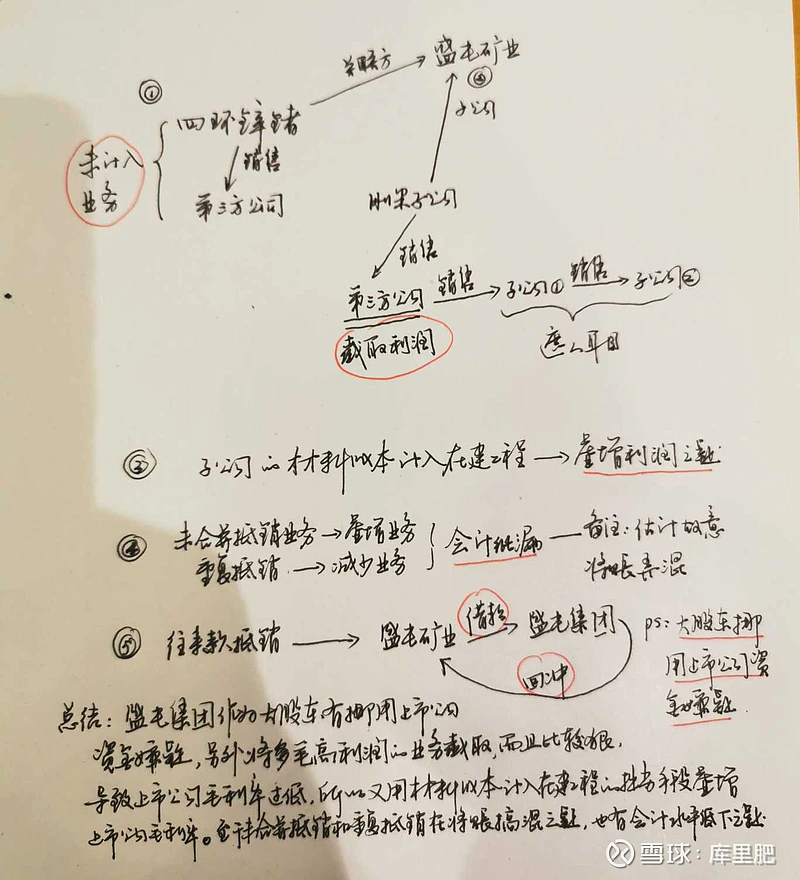 关联方 盛屯矿业
① ⑥
四环锌锗 子公司
未计入 销售
业务 第三方公司 刚果子公司
销售
第三方公司 销售 子公司① 销售 子公司②
截取利润 遮人耳目
③ 子公司的材料成本计入在建工程→虚增利润之嫌
④ 未合并抵销业务→虚增业务 会计纰漏—备注:估计故意
重复抵销→减少业务 将账弄混
⑤ 往来款抵销→盛屯矿业 借款 盛屯集团 ps:大股东挪
回冲 用上市公司资
金嫌疑
总结:盛屯集团作为大股东有挪用上市公司
资金嫌疑,另外将多毛高利润的业务截取,而且比较狠,
导致上市公司毛利率过低,所以又用材料成本计入在建工程的拙劣手段虚增
上市公司毛利率。至未合并抵销和重复抵销在将账搞混之嫌,也有会计水平低下之嫌
雪球:库里肥